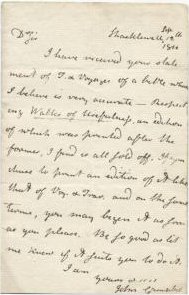 Shacklewell 19th
1800
Dr Sir
I have received your state
ment of T. & Voyages of a bk which
I believe is very accurate — Respect
ing Walks of Usefulness, an edition
of which was printed after the
former, I find is all sold off. If you
chuse to print an edition of it like
that of Voy. & Trav. and on the same
terms, you may begin it as soon
as you please. Be so good as let
me know if it suits you to do it.
I am
yours
John Campbell